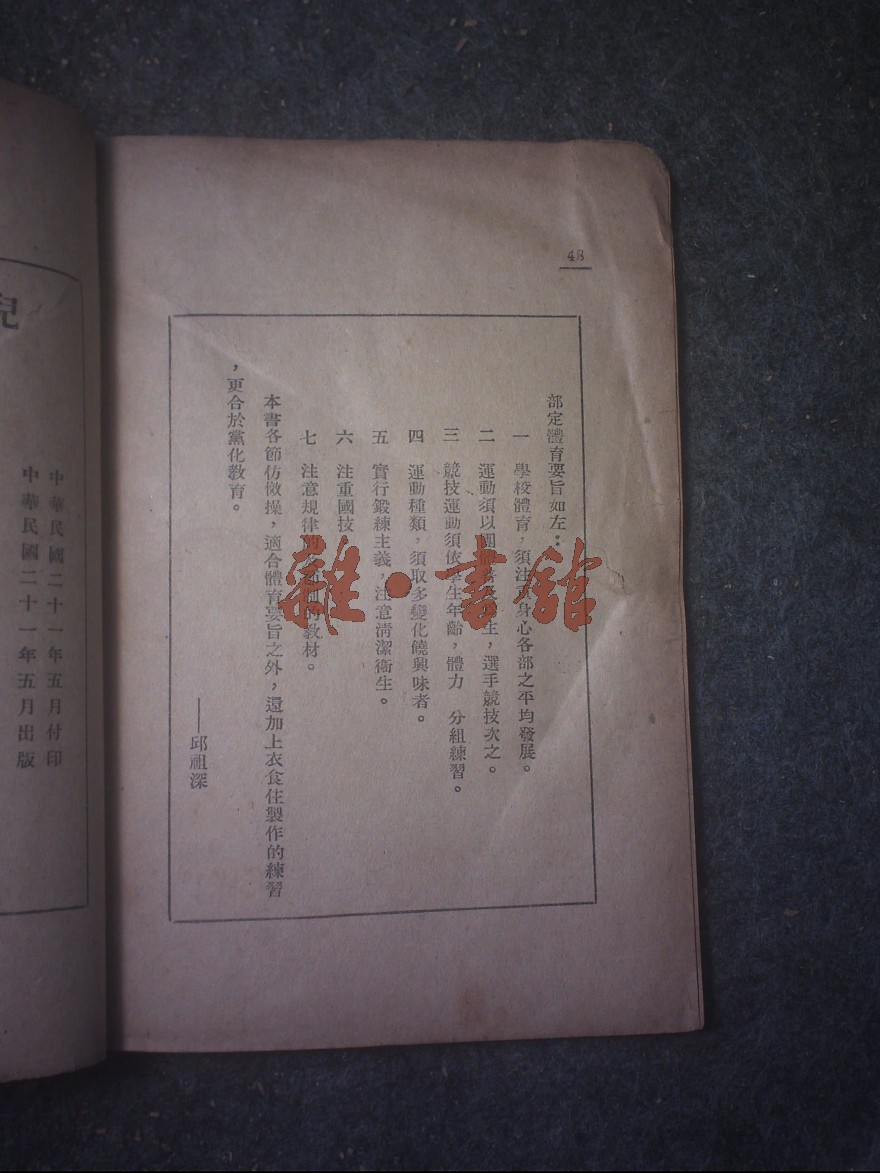 48
部定體育要旨如左：
一 學校體育，須注重身心各部之平均發展。
二 運動須以團體普及衛生，選手競技次之。
三 競技運動須依學生年齡，體力 分組練習。
四 運動種類，須取多變化饒興味者。
五 實行鍛練主義，注意清潔衛生。
六 注重國技
七 注意規律的 的教材。
本書各節仿倣操，適合體育要旨之外，還加上衣食住製作的練習
，更合於黨化教育。
——邱祖深
中華民國二十一年五月付印
中華民國二十一年五月出版
兒
雜·書館